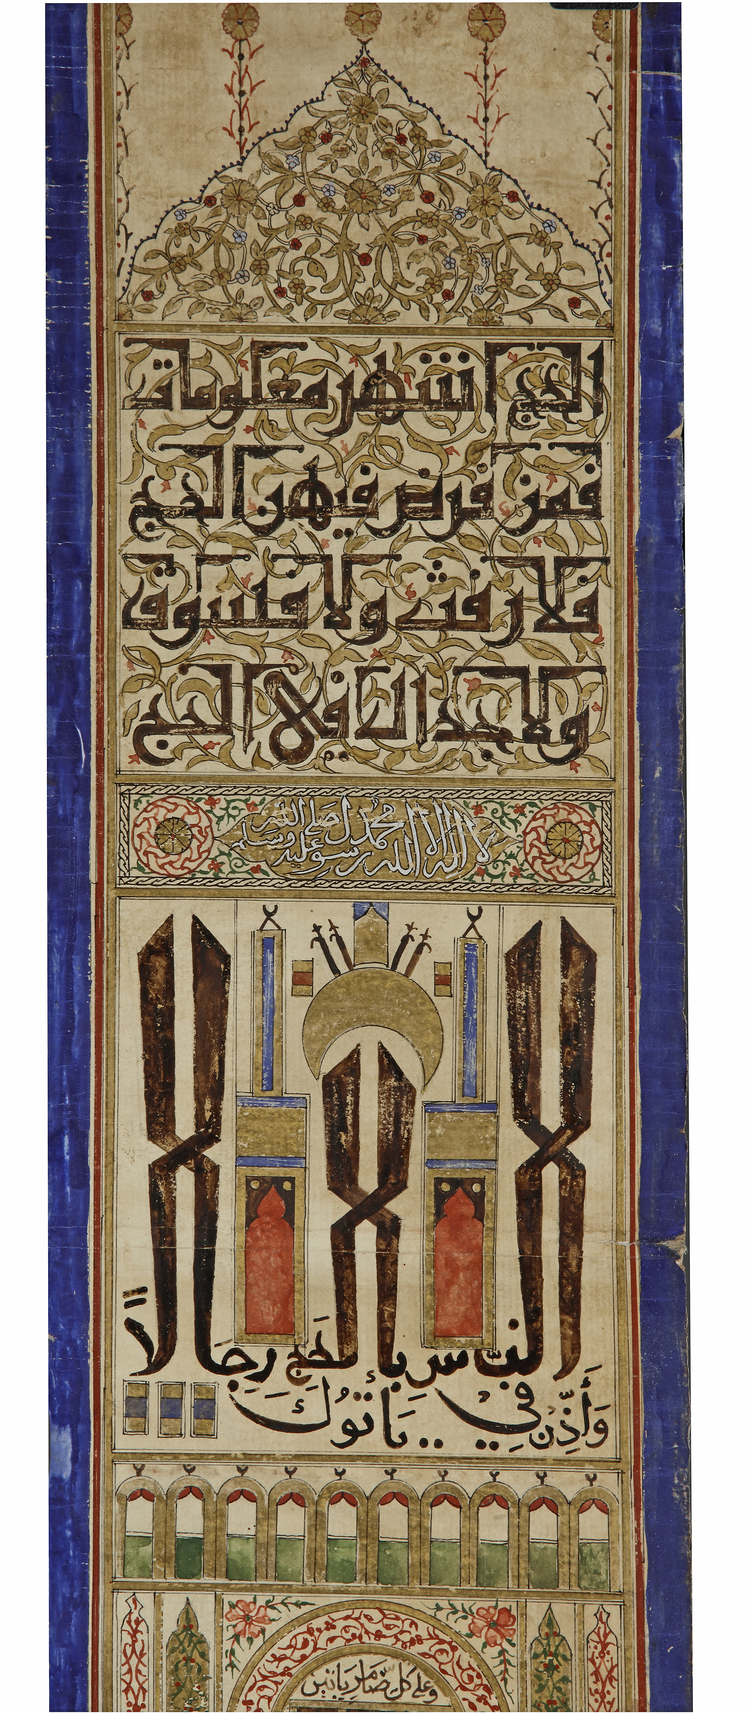 الحج اشهر معلومات
فمن فرض فيهن الحج
فلا رفث ولا فسوق
ولا جدال في الحج
لا اله الا الله محمد رسول الله صلى الله عليه وسلم
وَأَذِّنْ فِي
النَّاسِ بِالْحَجِّ
يَأْتُوكَ
رِجَالاً
وعلى كل ضامر يأتين